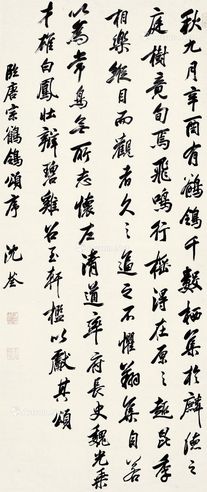 秋九月辛酉有鶺鴒千數栖集於麟德之
庭樹竟旬焉飛鳴行摇得在原之趣昆季
相樂縱目而觀者久之逼之不懼翔集自若
以爲常鳥無所志懷左清道率府長史魏光乘
才雄白鳳壯辯碧雞召至軒檻以獻其頌
臨唐宗鶺鴒頌序 沈荃